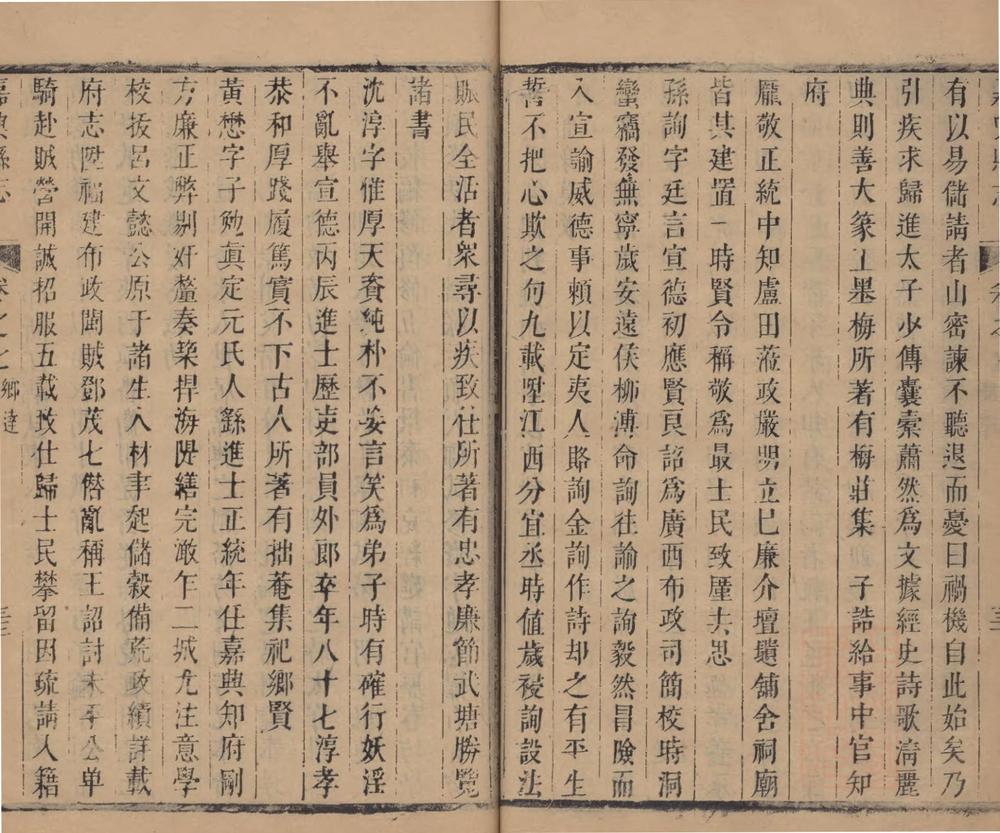 有以易儲請者山密諫不聽退而憂曰禍機自此始矣乃
引疾求歸進太子少傅囊橐蕭然爲文據經史詩歌淸麗
典則善大篆工墨梅所著有梅莊集　子誥給事中官知
府
龐敬正統中知盧田蒞政嚴明立巳廉介壇壝舖舍祠廟
皆其建置一時賢令稱敬爲最士民致厪去思
孫詢字廷言宣德初應賢良詔爲廣西布政司簡校時洞
蠻竊發無寧歲安遠侯柳溥命詢往諭之詢毅然冒險而
入宣諭威德事賴以定夷人賂詢金詢作詩却之有平生
誓不把心欺之句九載陞江西分宜丞時値歲祲詢設法
賑民全活者衆尋以疾致仕所著有忠孝廉節武塘勝覽
諸書
沈淳字惟厚天資純朴不妄言笑爲弟子時有確行妖淫
不亂舉宣德丙辰進士歷吏部員外郎卒年八十七淳孝
恭和厚踐履篤實不下古人所著有拙菴集祀鄉賢
黃懋字子勉眞定元氏人繇進士正統年任嘉興知府剛
方廉正弊剔奸釐奏築捍海隄繕完澉乍二城尤注意學
校拔呂文懿公原于諸生人材聿起儲穀備荒政績詳載
府志陞福建布政閩賊鄧茂七僣亂稱王詔討未平公单
騎赴賊營開誠招服五載致仕歸士民攀留因疏請入籍
嘉興縣志　卷之七　鄉達　三三